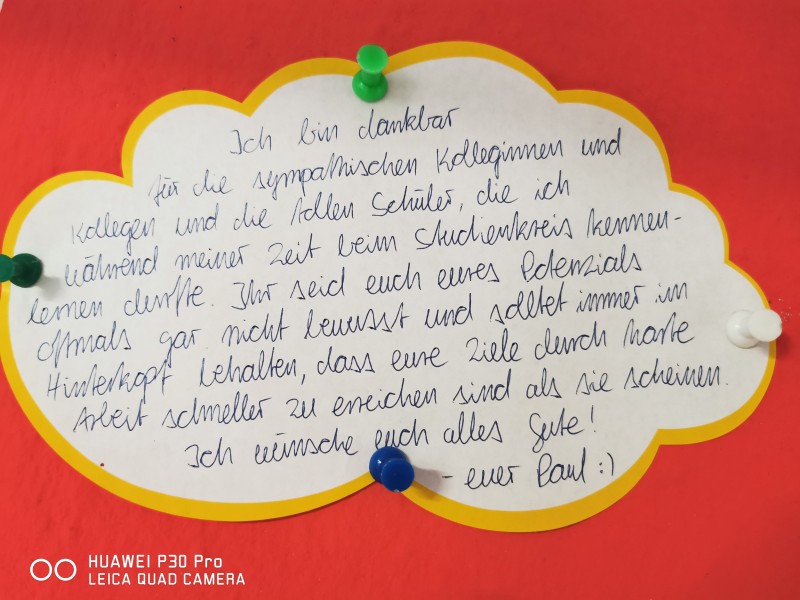 Ich bin dankbar
für die sympathischen Kolleginnen und
Kollegen und die tollen Schüler, die ich
während meiner Zeit beim Studienkreis kennen-
lernen durfte. Ihr seid euch eures Potenzials
oftmals gar nicht bewusst und solltet immer im
Hinterkopf behalten, dass eure Ziele durch harte
Arbeit schneller zu erreichen sind als sie scheinen.
Ich wünsche euch alles Gute!
- euer Paul :)
HUAWEI P30 Pro
LEICA QUAD CAMERA